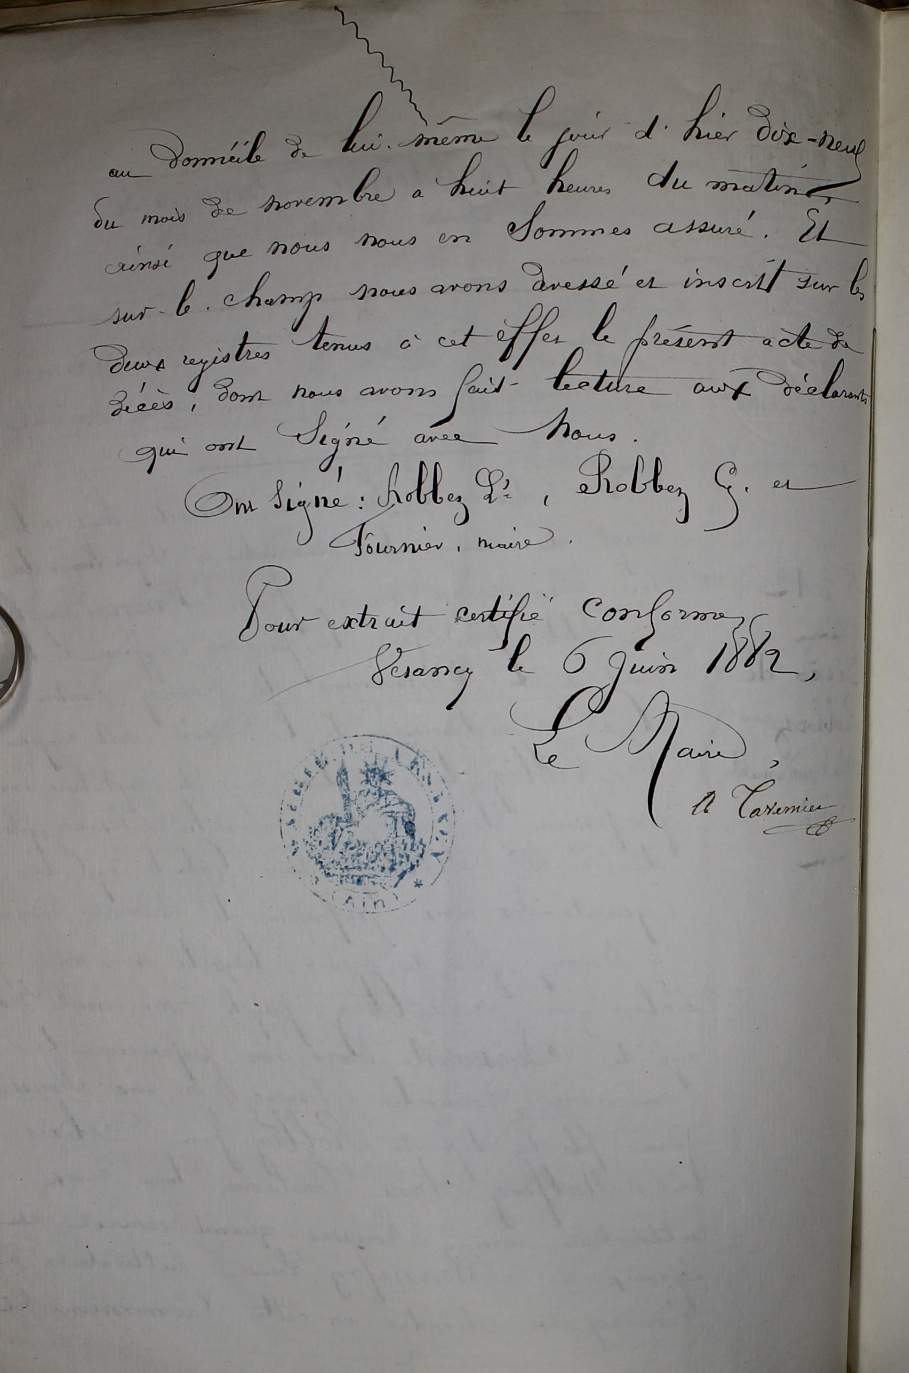 au domicile de lui-même le jour d'hier dix-neuf
du mois de novembre à huit heures du matin,
ainsi que nous nous en sommes assuré. Et
sur-le-champ nous avons dressé et inscrit sur les
deux registres tenus à cet effet le présent acte de
décès, dont nous avons fait lecture aux déclarants
qui ont signé avec nous.
Ont signé : Robbez Ls, Robbez G. et
Fournier, maire.
Pour extrait certifié conforme,
Vesancy le 6 Juin 1882,
Le Maire,
MAIRIE DE VESANCY
(Ain)